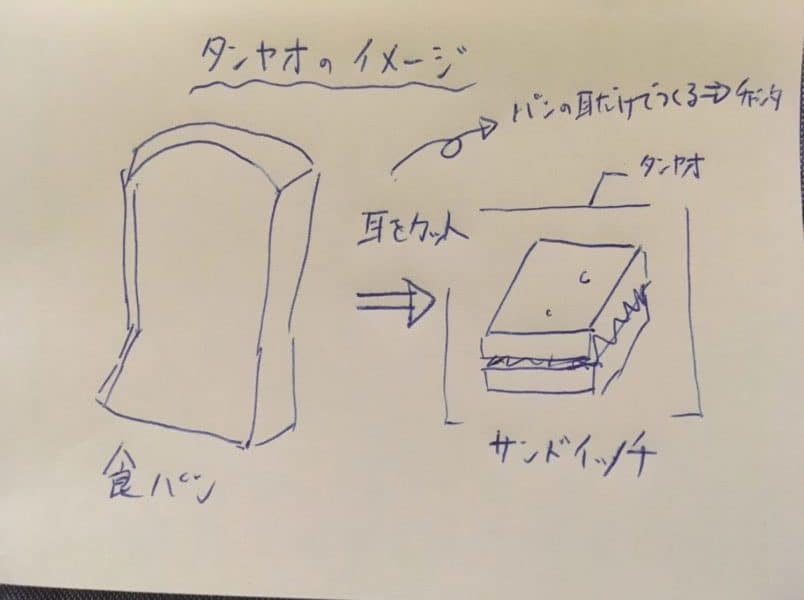 タンヤオのイメージ
パンの耳だけでつくる⇒チャンタ
タンヤオ
耳をカット
食パン
サンドイッチ